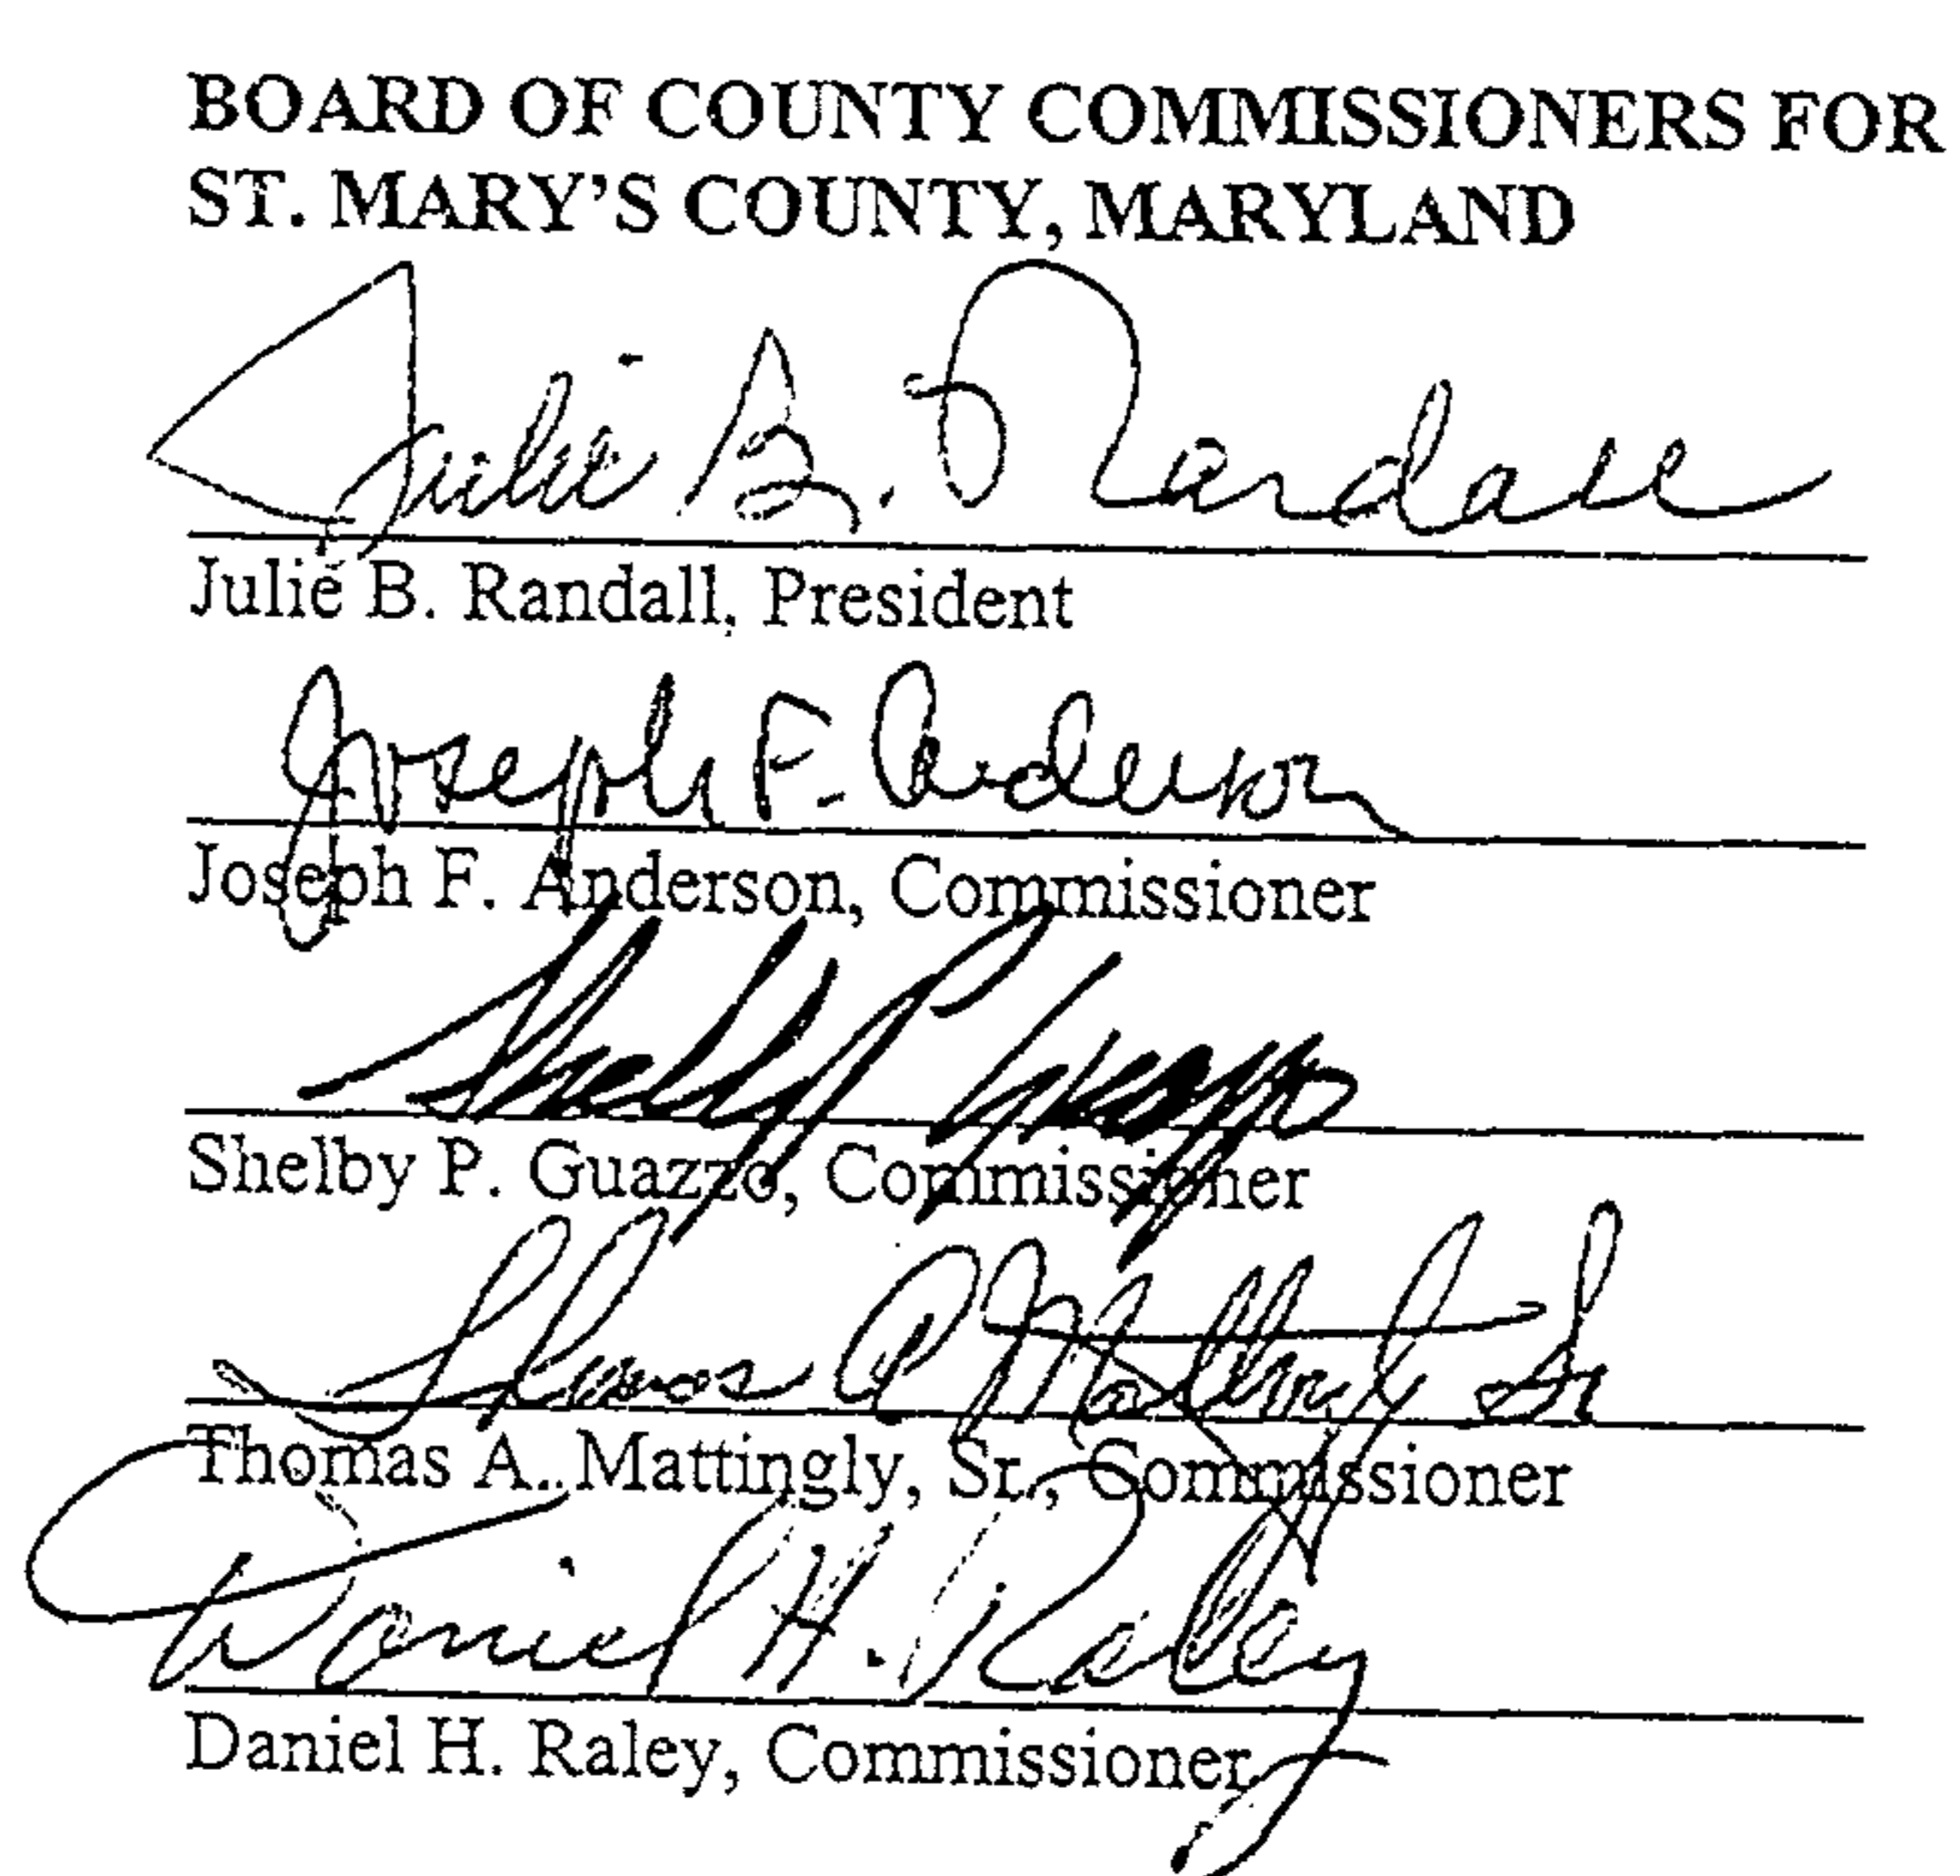 BOARD OF COUNTY COMMISSIONERS FOR
ST. MARY'S COUNTY, MARYLAND
Julie B. Randall
Julie B. Randall, President
Joseph F. Anderson
Joseph F. Anderson, Commissioner
Shelby P. Guazzo
Shelby P. Guazzo, Commissioner
Thomas A Mattingly Sr
Thomas A. Mattingly, Sr., Commissioner
Daniel H. Raley
Daniel H. Raley, Commissioner